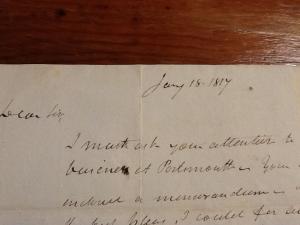 Jany 18. 1817
Dear Sir,
I must ask your attention to
business at Portsmouth. Your
enclosed a memorandum
I could for